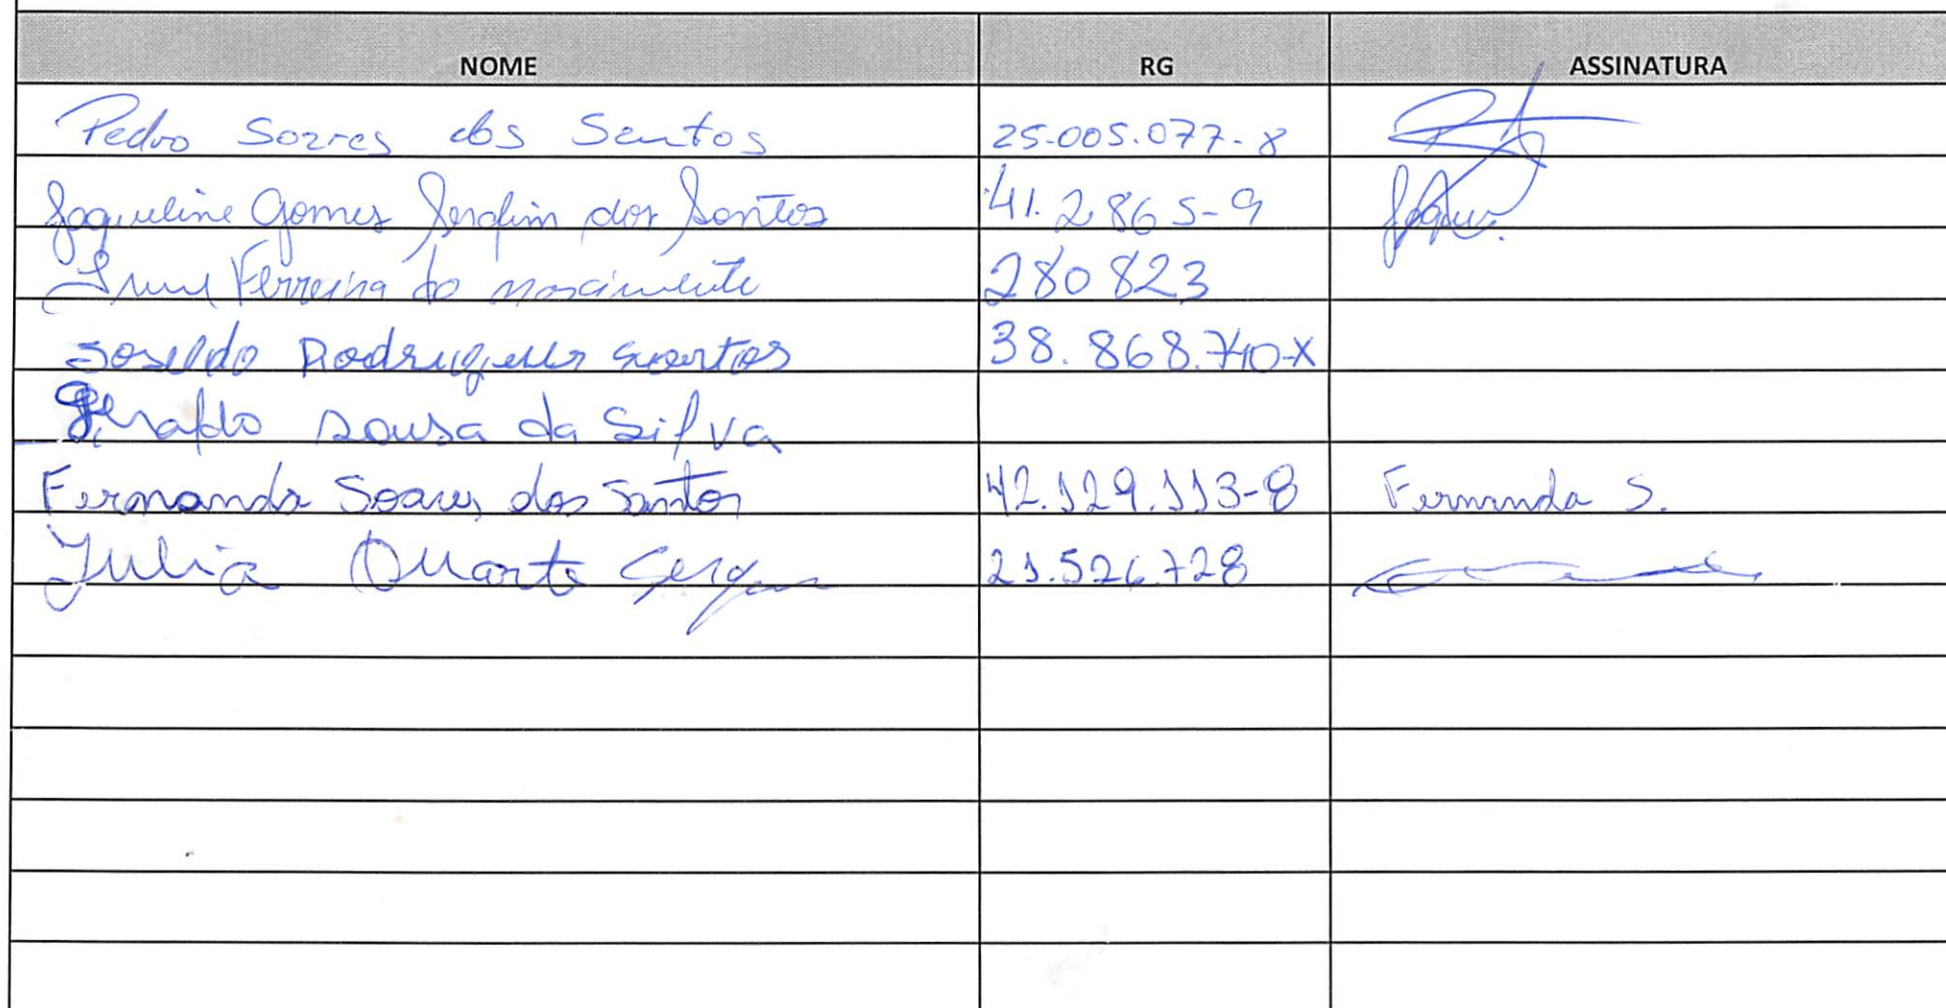 NOME RG ASSINATURA
Pedro Soares dos Santos 25.005.077-8
Jaqueline Gomes Serafim dos Santos 41.2865-9
Ferreira do nascimento 280823
Rodrigues santos 38.868.740-X
Geraldo sousa da Silva
Fernanda Soares dos Santos 42.129.113-8 Fernanda S.
Julia Duarte 21.526.728